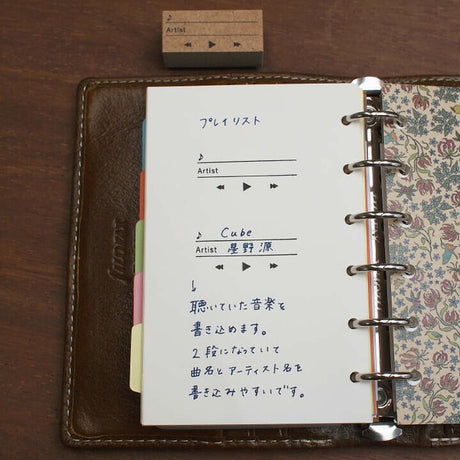 ♪
Artist
◀◀ ▶ ▶▶
プレイリスト
♪
Artist
◀◀ ▶ ▶▶
♪ Cube
Artist 星野源
◀◀ ▶ ▶▶
↓
聴いていた音楽を
書き込めます。
2段になっていて
曲名とアーティスト名を
書き込みやすいです。